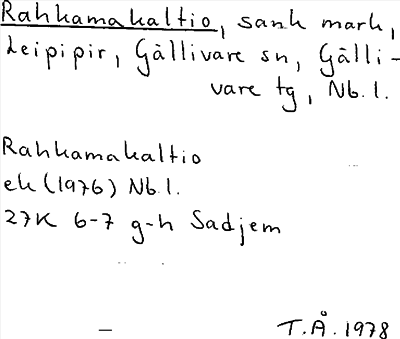 Rahkamakaltio, sank mark,
Leipipir, Gällivare sn, Gälli-
vare tg, Nb. l.
Rahkamakaltio
ek (1976) Nb. l.
27K 6-7 g-h Sadjem
T.Å. 1978